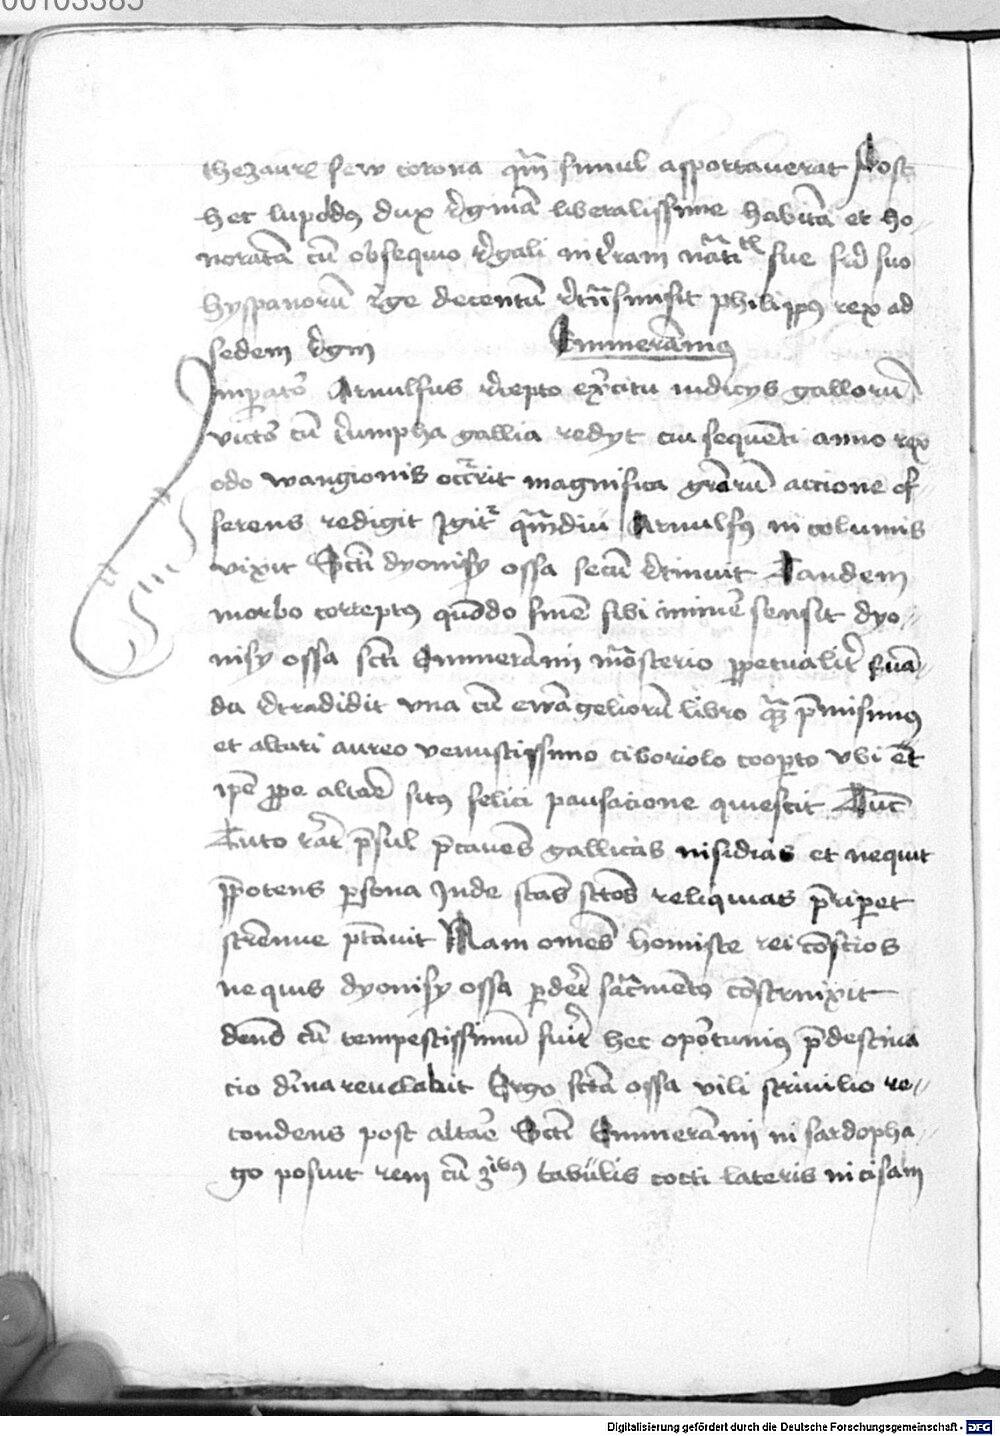 00103385
thezaur seu corona qm simul asportauerat Post
hec lupoldus dux reginā liberalissime habitā et ho-
noratā cū obsequio regali in terram natiuitatis sue sed suo
hyspanorū rege decentū missit philippus rex ad
sedem regni Emmeramus
Imperator Arnulfus recepto exercitu indicys gallorū
victor cū triumpho gallia redyt cui sequēti anno rex
odo wangionis occurrit magnifica grarū accione of-
ferens redigit Igitur qmdiu Arnulfus in columis
vixit Scti dyonisy ossa secū detinuit Tandem
morbo correptus quādo finē sibi imminē sensit dyo-
nisy ossa scti Emmerammi mōsterio perpetualiter suā-
da tradidit vna cū ewāgeliorū libro quē pmisimus
et altari aureo venustissimo ciboriolo cooperto vbi et
ipē prope altare situs felici pausacione quiescit Tūc
Tuto rat presul precauēs gallicas insidias et nequit
prepotens persona Inde scās sctos reliquias preriperet
strēnue ptauit Nam omēs homiste rei cōscios
ne quis dyonisy ossa perderet sacramento cōstrinxit
donec cū tempestissimū fuerit hec oportunius predestina
cio diuina reuelabit Ergo scta ossa vili scrinilio re-
condens post altare Scti Emmerammi in sardopha-
go posuit rem cū tribus tabulis cocti lateris incisam
Digitalisierung gefördert durch die Deutsche Forschungsgemeinschaft - DFG